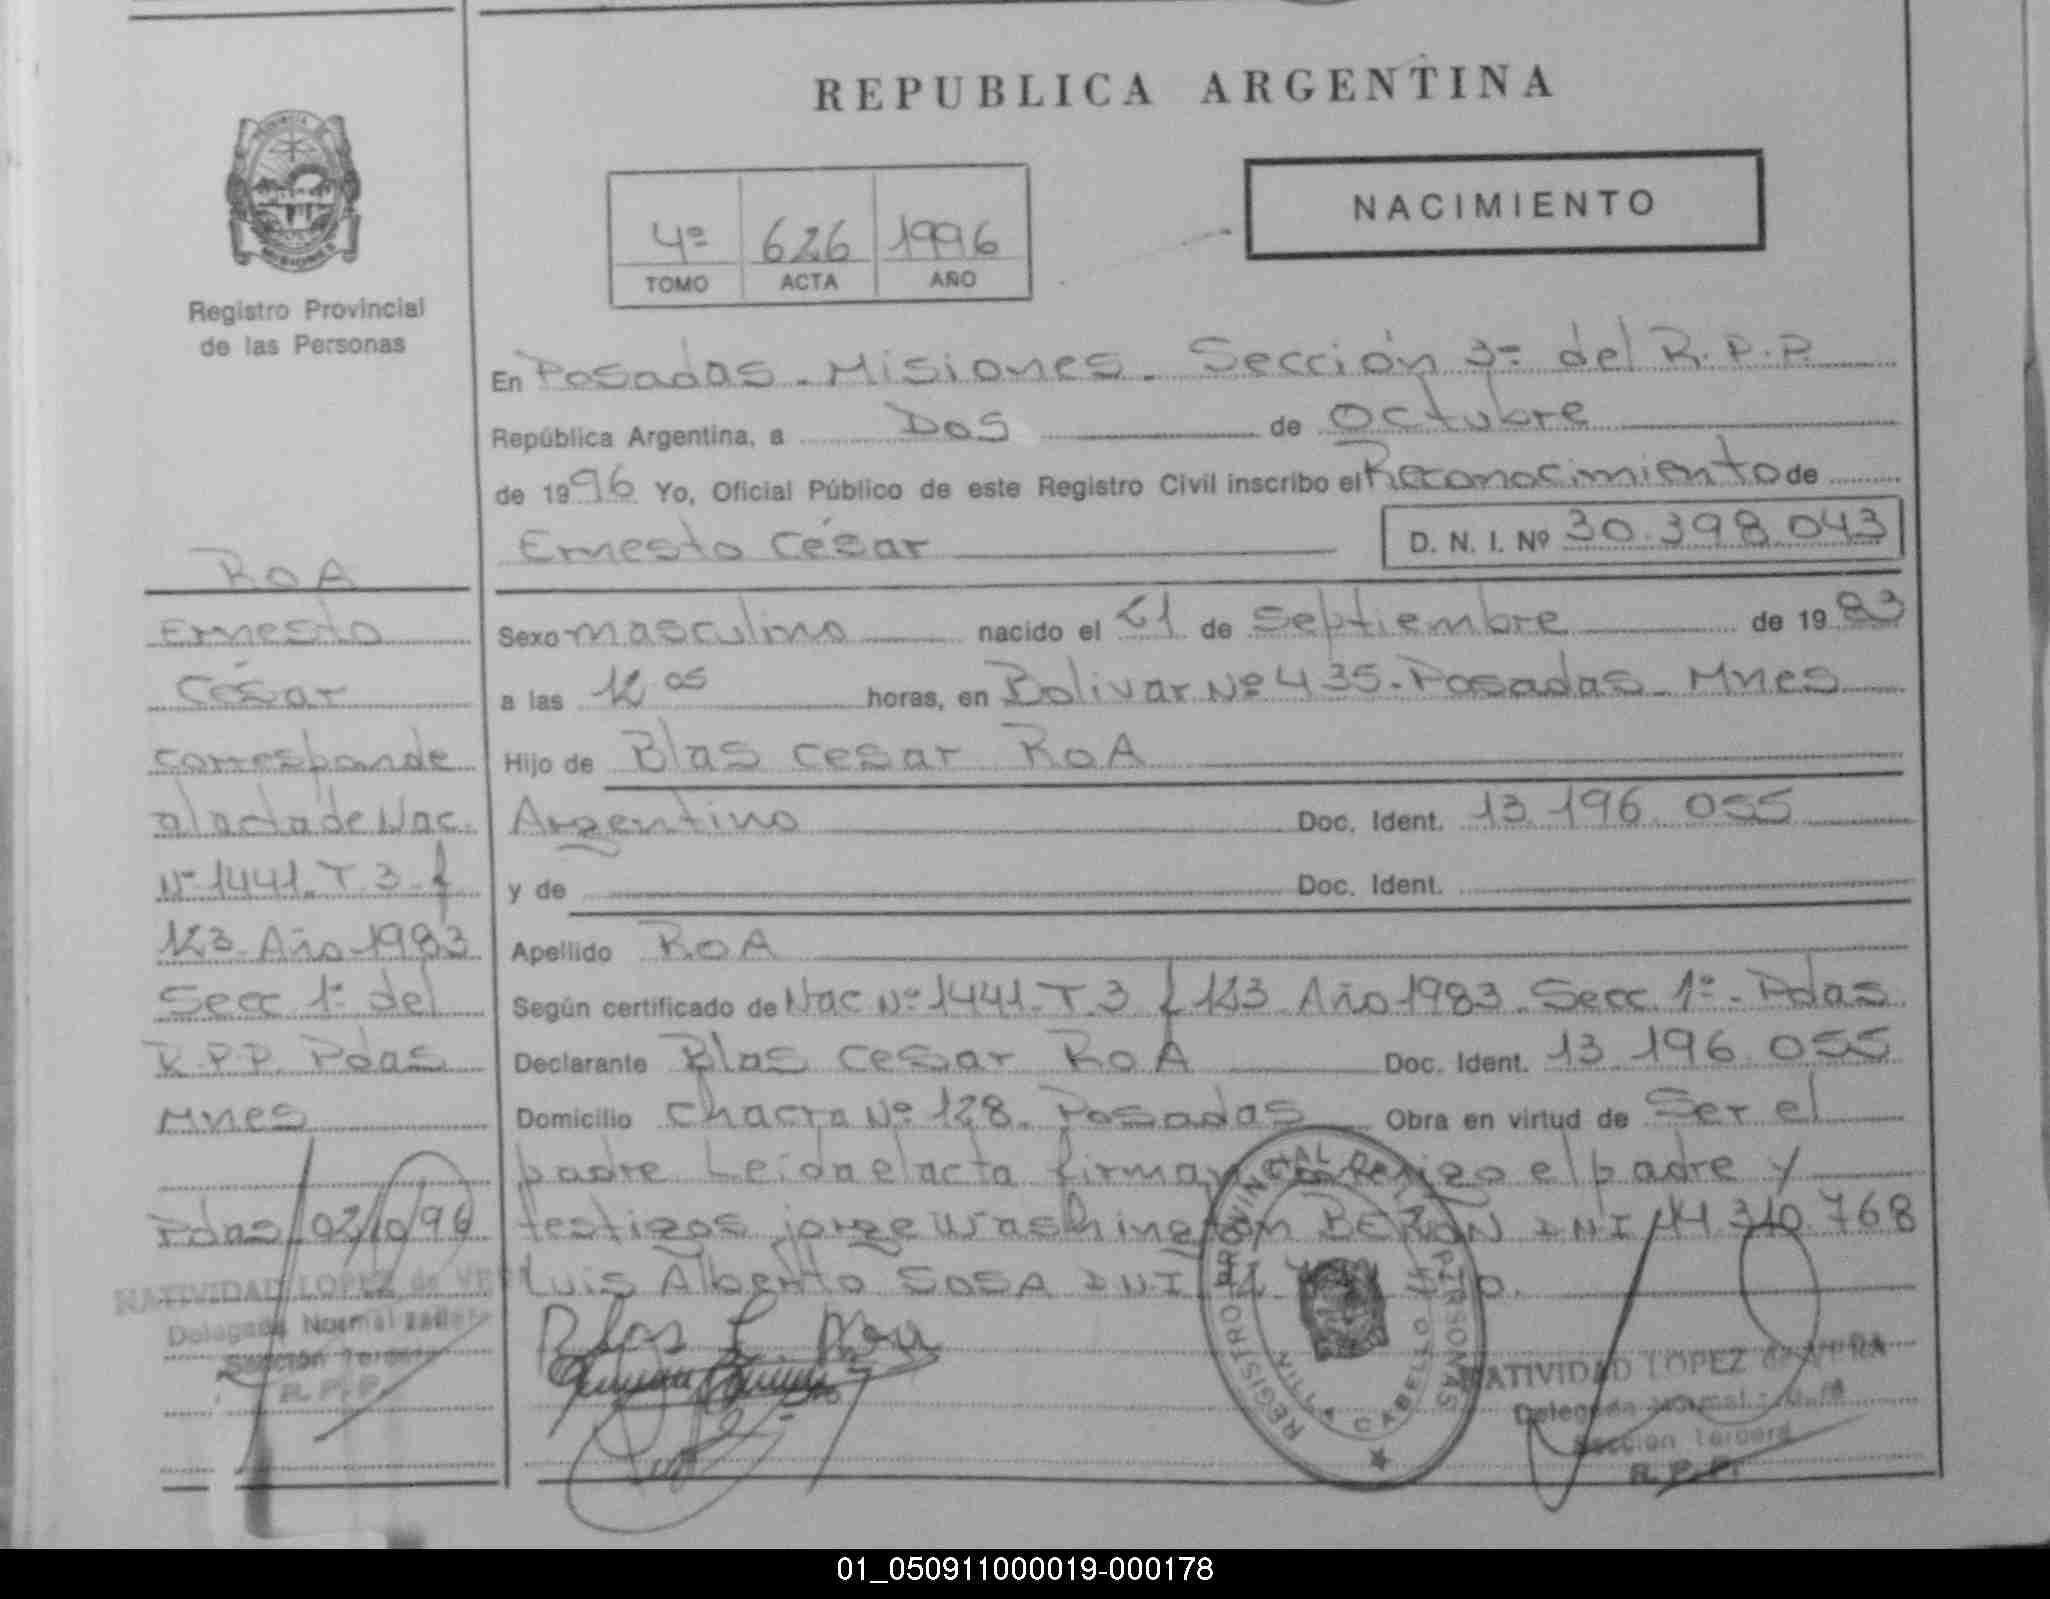 REPUBLICA ARGENTINA
NACIMIENTO
4º 626 1996
TOMO ACTA AÑO
Registro Provincial
de las Personas
En Posadas - Misiones - Sección 3º del R.P.P.
República Argentina, a Dos de Octubre
de 1996 Yo, Oficial Público de este Registro Civil inscribo el Reconocimiento de
Ernesto César D. N. I. Nº 30.398.043
Sexo masculino nacido el 21 de Septiembre de 1983
a las 12 05 horas, en Bolivar Nº 435. Posadas - Mnes
Hijo de Blas cesar ROA
Argentino Doc. Ident. 13.196.055
y de Doc. Ident.
Apellido ROA
Según certificado de Nac Nº 1441 - T 3 f 123 Año 1983 - Secc 1º - Pdas
Declarante Blas cesar ROA Doc. Ident. 13.196.055
Domicilio chacra Nº 128. Posadas Obra en virtud de Ser el
padre Leida el acta firman conmigo el padre y
testigos jorge Washington BERON DNI 14.310.768
Luis Alberto SOSA DNI
ROA
Ernesto
César
corresponde
al acta de Nac.
Nº 1441 - T 3 - f
123 - Año 1983
Secc 1º del
R.P.P. Pdas
Mnes
Pdas 02/10/96
NATIVIDAD LOPEZ de
Delegada
Sección Tercera
R.P.P.
REGISTRO PROVINCIAL DE LAS PERSONAS
VILLA CABELLO
NATIVIDAD LOPEZ de VERA
Delegada
Sección Tercera
R.P.P.
01_050911000019-000178